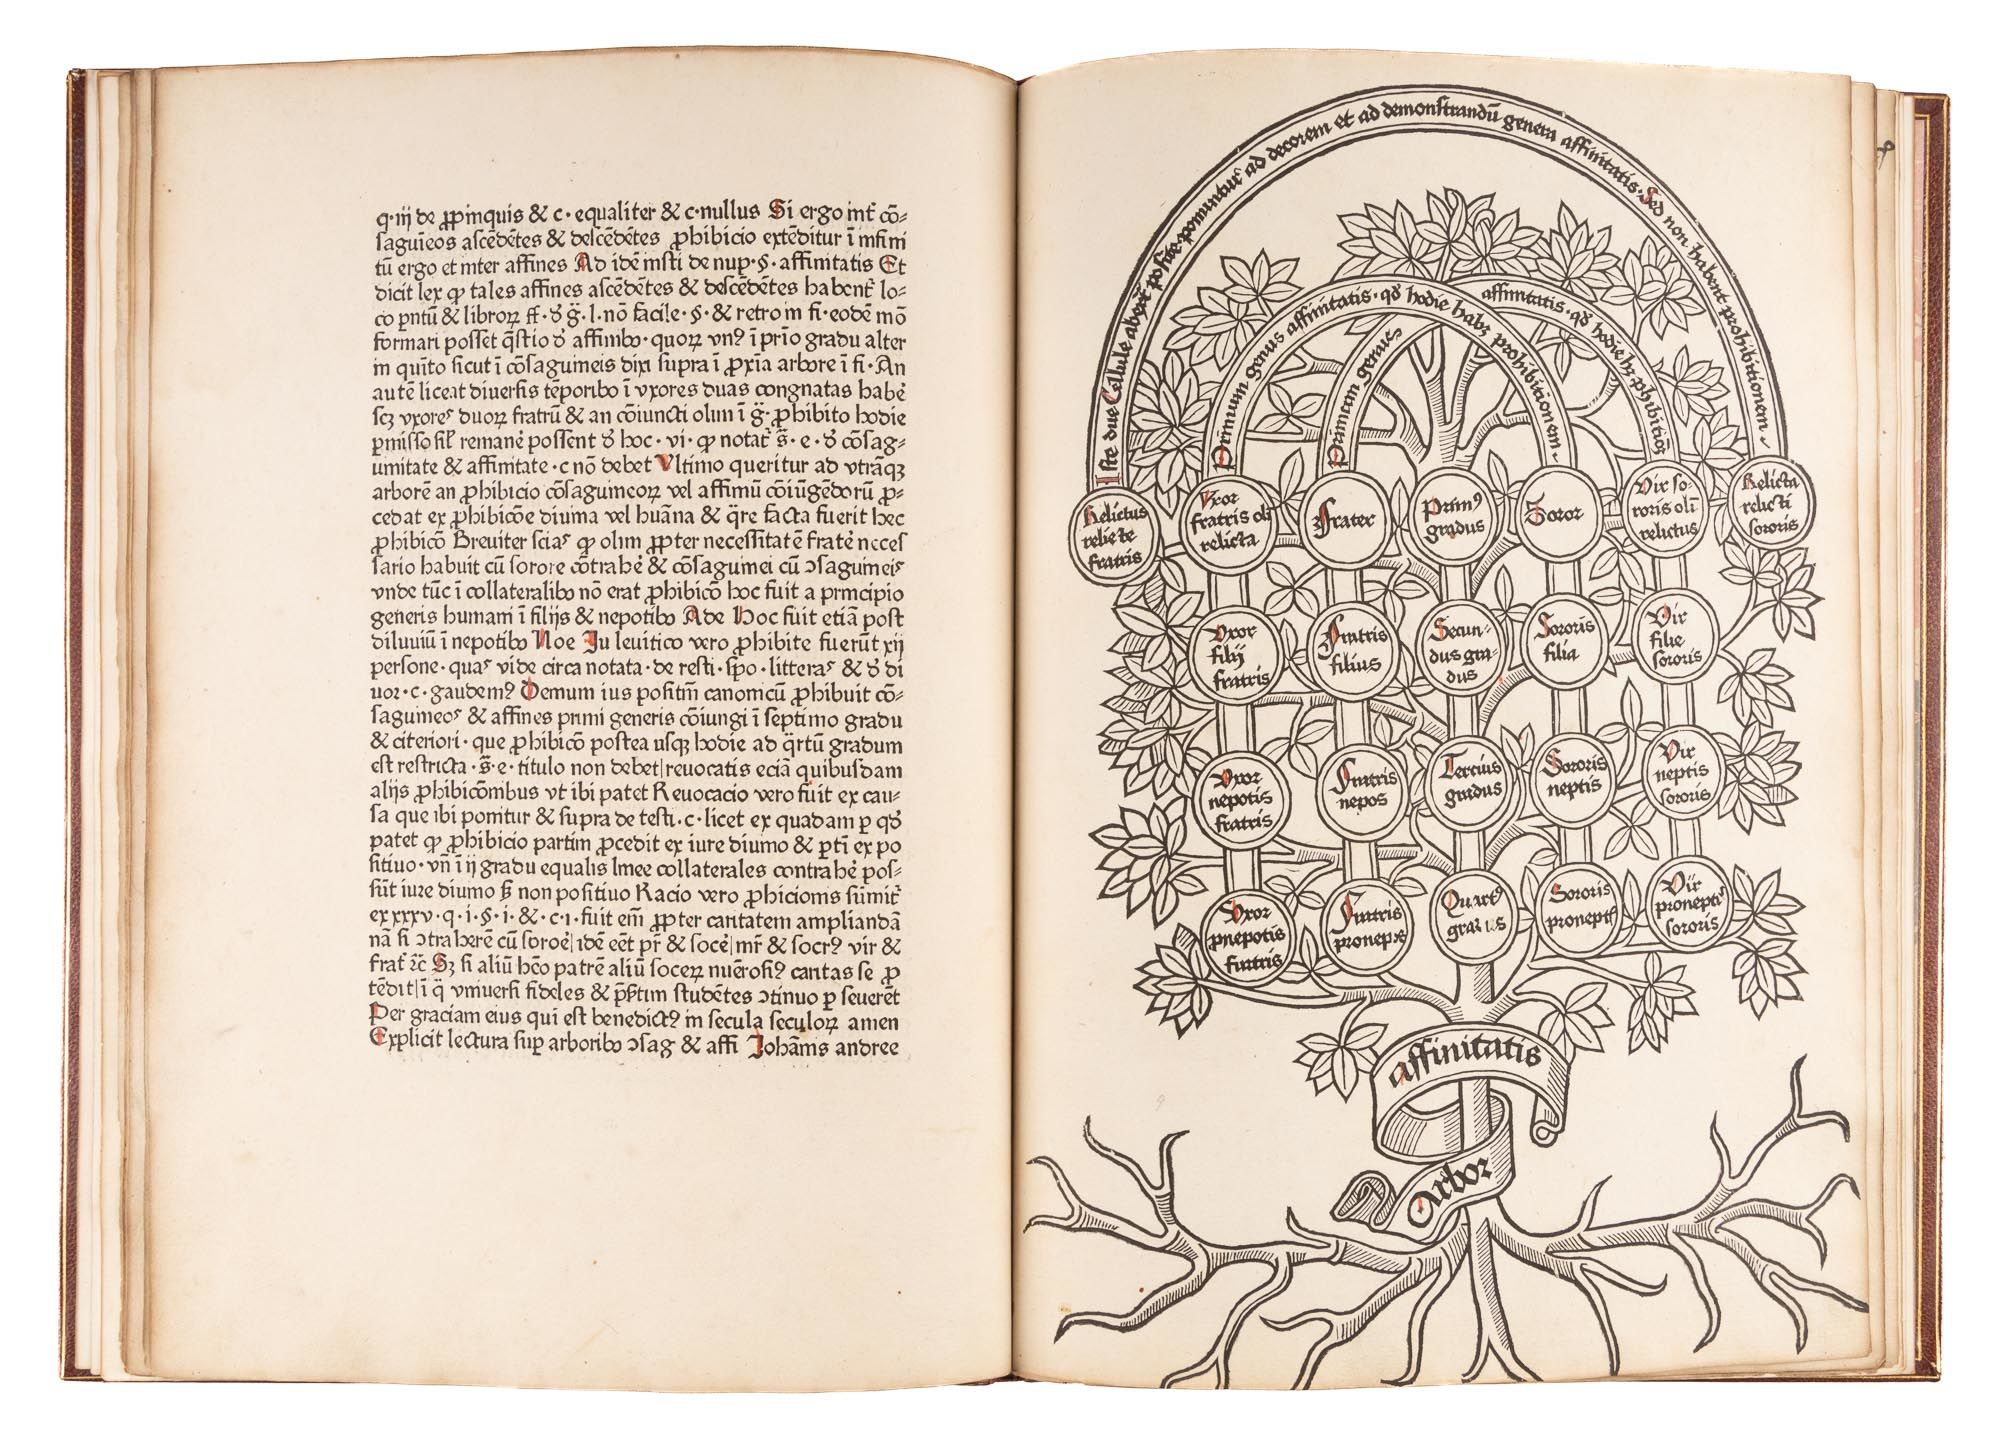 q·iij de ꝓpinquis & c·equaliter & c·nullus Si ergo int̄ cō⸗
saguīeos ascēdētes & descēdētes ꝓhibicio extēditur ī infini
tū ergo et inter affines Ad idē insti de nup·§·affinitatis Et
dicit lex ꝙ tales affines ascēdētes & descēdētes habent̄ lo⸗
co & retro in fi·eodē mō
formari posset q̄stio
in quīto sicut ī cōsaguineis dixi supra ī ꝓxīa arbore ī fi·An
autē liceat diuersis tēporibꝰ ī vxores duas congnatas habē
duoꝝ fratrū & an cōiuncti olim ī g̈·ꝓhibito hodie
ꝑmisso remanē possent
umitate & affinitate·c nō debet Vltimo queritur ad vtrāqꝫ
arborē an ꝓhibicio cōsaguineoꝝ vel affiniū cōiūgēdorū ꝓ⸗
cedat ex ꝓhibicōe diuina vel huāna & q̄re facta fuerit hec
ꝓhibicō Breuiter ꝙ olim ꝓpter necessitatē fratē neces
sario habuit cū sorore cōtrahē & cōsaguinei cū
vnde tūc ī collateralibꝰ nō erat ꝓhibicō hoc fuit a principio
generis humani ī filijs & nepotibꝰ Ade Hoc fuit etiā post
diluuiū ī nepotibꝰ Noe In leuitico vero ꝓhibite fuerūt xij
persone·
uor·c·gaudemꝰ Demum ius positiuū canonicū ꝓhibuit cō⸗
& affines primi generis cōiungi ī septimo gradu
& citeriori·que ꝓhibicō postea usqꝫ hodie ad q̄rtū gradum
est restricta·s̄·e·titulo non debet|reuocatis eciā quibusdam
alijs ꝓhibicōnibus vt ibi patet Reuocacio vero fuit ex cau⸗
sa que ibi ponitur & supra de testi·c·licet ex quadam ꝑ
patet ꝙ ꝓhibicio partim ꝓcedit ex iure diuino & ꝑtī ex po
sitiuo·vn̄ ī ij gradu equalis linee collaterales contrahē pos⸗
sūt iure diuino non positiuo Racio vero
ex xxxv·q·i·§·i·& ·c·i·fuit em̄ ꝓpter caritatem ampliandā
nā si
frat̄
tēdit|ī q̄ vniuersi fideles & studētes
Per graciam eius qui est benedictꝰ in secula seculoꝝ amen
Explicit lectura suꝑ arboribꝰ ↄsag & affi Johānis andree
Iste due Cellule ponuntur ad decorem et ad demonstrandū genera affinitatis·Sed non habent prohibitionem
Primum genus affinitatis·qd̄ hodie habꝫ prohibitionem
Primum genus affinitatis·qd̄ hodie
Relictus
relicte
fratris
Vxor
fratris oli
relicta
Frater
Primꝰ
gradus
Soror
Vir so⸗
roris oli
relictus
Relicta
relicti
sororis
Vxor
filij
fratris
Fratris
filius
Secun⸗
dus gra⸗
dus
Sororis
filia
Vir
filie
sororis
Vxor
nepotis
fratris
Fratris
nepos
Tertius
gradus
Sororis
neptis
Vir
neptis
sororis
Vxor
ꝓnepotis
fratris
Fratris
pronepos
Quartꝰ
gradus
Sororis
proneptis
Vir
proneptis
sororis
affinitatis
Arbor